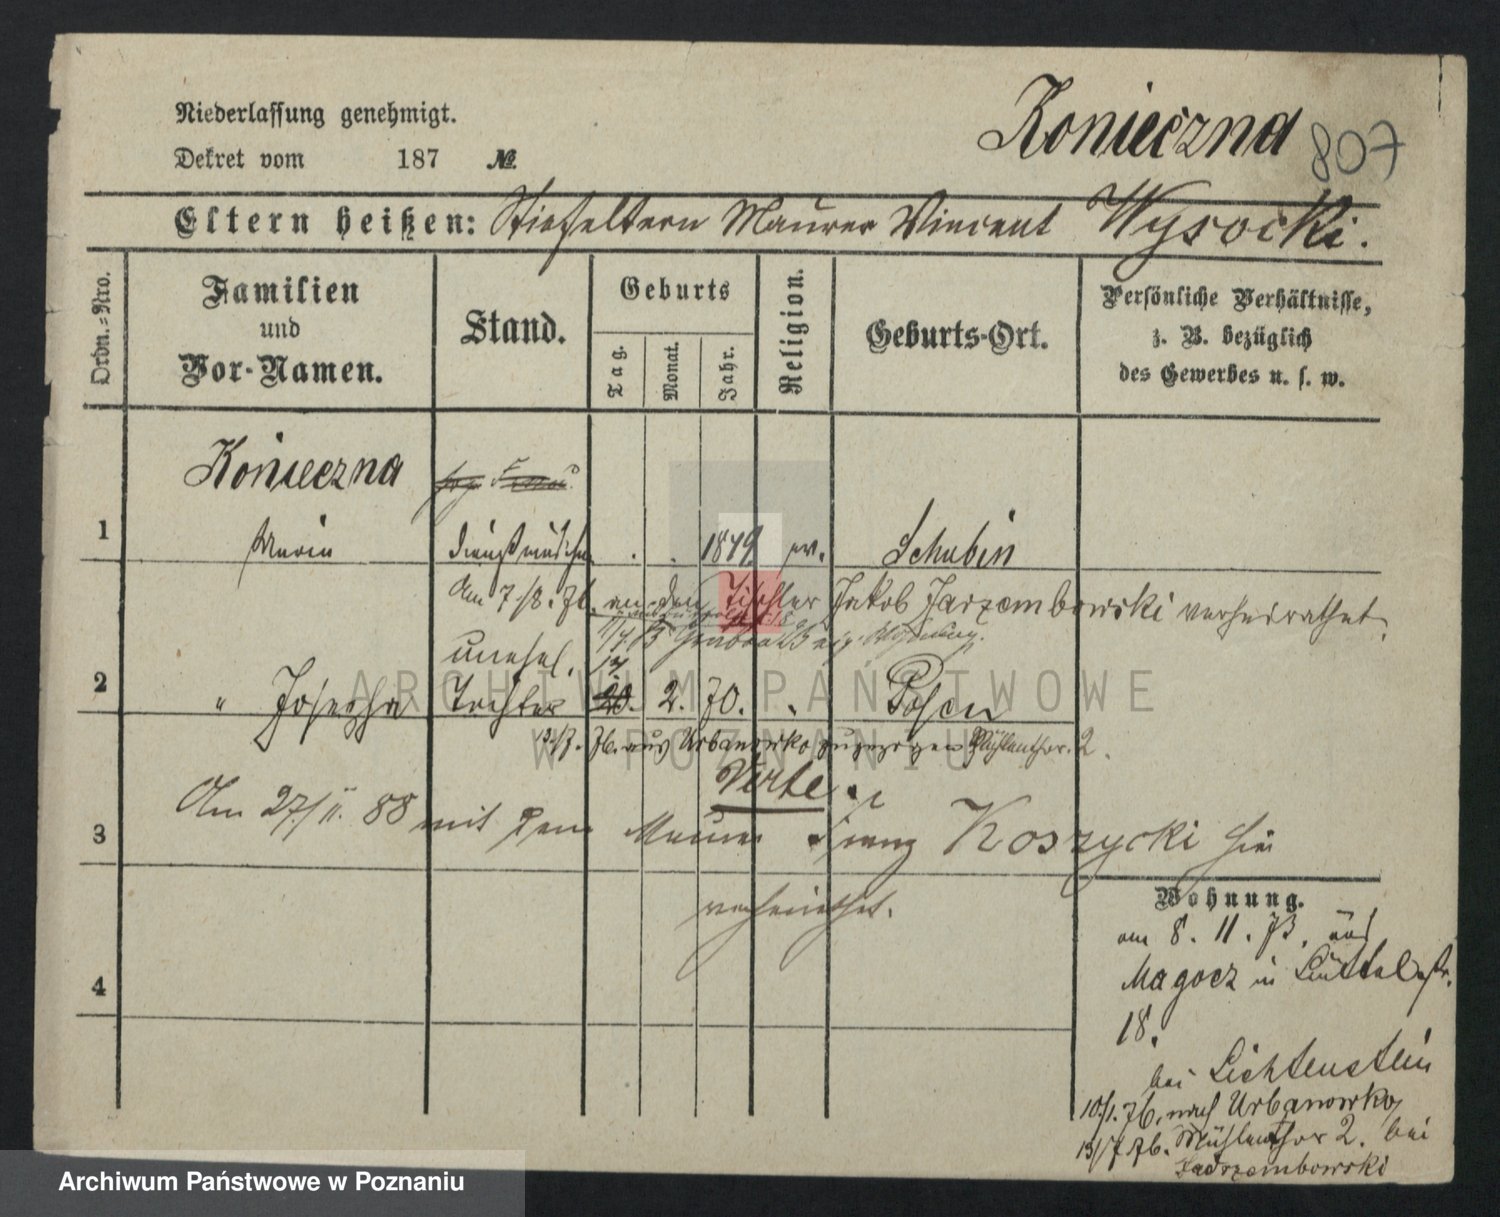 Niederlassung genehmigt.
Dekret vom 187 №
Konieczna 807
Eltern heißen: Stiefeltern Maurer Vincent Wysocki.
Ordn.-Nro.
Familien und Vor-Namen.
Stand.
Geburts
Tag.
Monat.
Jahr.
Religion.
Geburts-Ort.
Persönliche Verhältnisse,
z. B. bezüglich
des Gewerbes u. s. w.
Konieczna
1 Maria Dienstmädchen 1849 Schubin
Am 7/8. 76. an den Tischler Jakob Jarzembowski verheirathet.
unehel.
2 " Josepha Tochter 2. 70. Posen
76. aus Urbanowko zugezogen Mühlenthor. 2.
Verte.
3 Am 27/II. 88 mit dem Maurer Franz Koszycki hier
verheirathet.
4
Wohnung.
am 8. 11. 73. aus
Magocz in
18.
bei Lichtenstein
10/1. 76. nach Urbanowko
13/7 76. Mühlenthor 2. bei
Jadrzembowski
ARCHIWUM PAŃSTWOWE
W POZNANIU
Archiwum Państwowe w Poznaniu